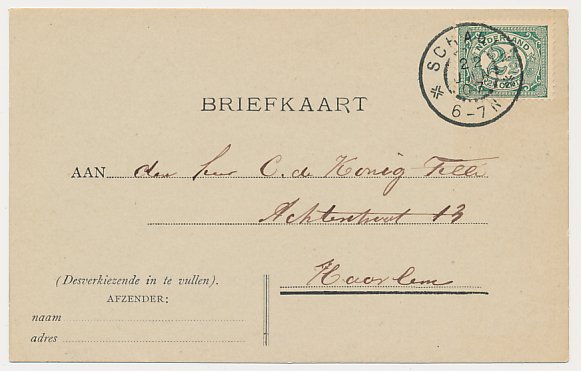 SCHAG
22
6-7 N
NEDERLAND
2½
BRIEFKAART
AAN den heer C. de Konig Telli
Achterstraat 13
Haarlem
(Desverkiezende in te vullen).
AFZENDER:
naam
adres